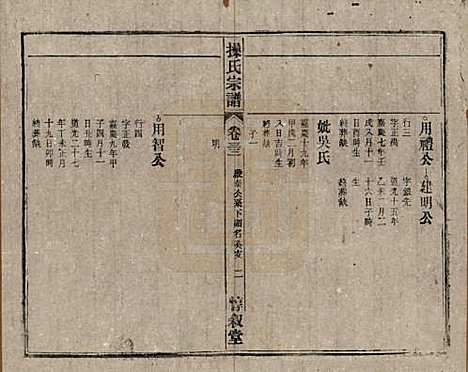 用禮公
建明公
行三
字正禮
嘉慶七年壬
戌八月十八
日酉時生
終葬缺
字銀先
道光十五年
乙未二月二
十六日子時
終葬缺
妣吳氏
嘉慶十九年
甲戌二月初
八日吉時生
終葬缺
子一
明
操氏宗譜
卷三
惇叙堂
用智公
行四
字正
嘉慶九年甲
子四月十一
日戌時生
道光二十七
年丁未正月
十九日卯時
終葬缺